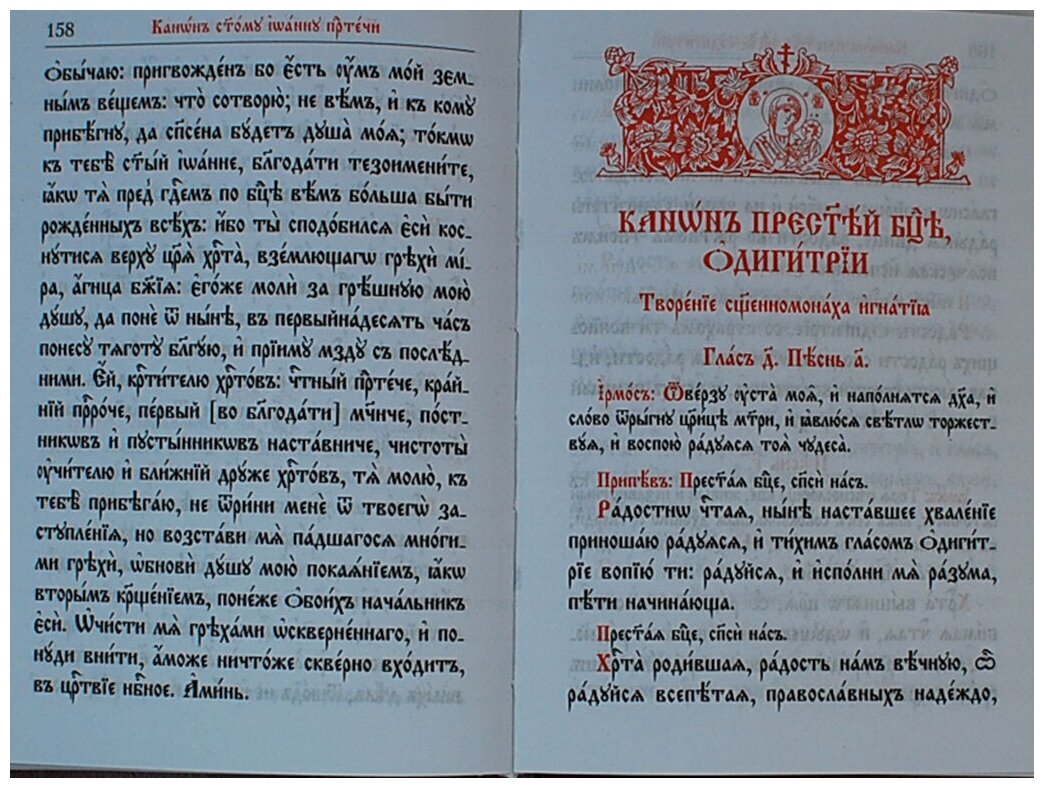 158
Канѡ́нъ ст҃о́мꙋ і҆ѡа́ннꙋ пр҃те́чи
ѻ҆бы́чаю: пригвожде́нъ бо є҆́сть ᲂу҆́мъ мо́й зем-
ны́мъ ве́щемъ: что̀ сотворю̀; не вѣ́мъ, и҆ къ комꙋ̀
прибѣ́гнꙋ, да сп҃се́на бꙋ́детъ дꙋша̀ моѧ̀; то́кмѡ
къ тебѣ̀ ст҃ы́й і҆ѡа́нне, бл҃года́ти тезоимени́те,
ꙗ҆́кѡ тѧ̀ пред̾ гдⷭ҇емъ по бц҃ѣ вѣ́мъ бо́льша бы́ти
рожде́нныхъ всѣ́хъ: и҆́бо ты̀ сподо́билсѧ є҆сѝ кос-
нꙋ́тисѧ верхꙋ̀ цр҃ѧ̀ хрⷭ҇та̀, взе́млющагѡ грѣхѝ мі́-
ра, а҆́гнца бж҃і́ѧ: є҆го́же молѝ за грѣ́шнꙋю мою̀
дꙋ́шꙋ, да понѐ ѿ ны́нѣ, въ пе́рвыйна́десѧть ча́съ
понесꙋ̀ тѧготꙋ̀ бл҃гꙋ́ю, и҆ прїимꙋ̀ мздꙋ̀ съ послѣ́д-
ними. Є҆́й, крⷭ҇ти́телю хрⷭ҇то́въ: чⷭ҇тны́й прⷣте́че, кра́й-
нїй прⷪ҇ро́че, пе́рвый [во бл҃года́ти] мч҃ниче, по́ст-
никѡвъ и҆ пꙋсты́нникѡвъ наста́вниче, чистоты̀
ᲂу҆чи́телю и҆ бли́жнїй дрꙋ́же хрⷭ҇то́въ, тѧ̀ молю̀, къ
тебѣ̀ прибѣга́ю, не ѿри́ни менѐ ѿ твоегѡ̀ за-
стꙋпле́нїѧ, но возста́ви мѧ̀ па́дшагосѧ мно́ги-
ми грѣхѝ, ѡ҆бновѝ дꙋ́шꙋ мою̀ покаѧ́нїемъ, ꙗ҆́кѡ
вторы́мъ крⷭ҇ще́нїемъ, поне́же ѻ҆бои́хъ нача́льникъ
є҆сѝ. Ѡ҆чи́сти мѧ̀ грѣха́ми ѡ҆скверне́ннаго, и҆ по-
нꙋ́ди вни́ти, а҆́може ничто́же скве́рно вхо́дитъ,
въ црⷭ҇твїе нбⷭ҇ное. А҆ми́нь.
КАНѠ́НЪ ПРЕСТ҃Ѣ́Й БЦ҃Ѣ,
Ѻ҆ДИГИ́ТРЇИ
Творе́нїе сщ҃енномона́ха игна́тїѧ
Гла́съ д҃. Пѣ́снь а҃.
І҆рмо́съ: Ѿве́рзꙋ ᲂу҆ста̀ моѧ̀, и҆ напо́лнѧтсѧ дх҃а, и҆
сло́во ѿры́гнꙋ цр҃и́цѣ мт҃ри, и҆ ꙗ҆влю́сѧ свѣ́тлѡ торжест-
вꙋ́ѧ, и҆ воспою̀ ра́дꙋѧсѧ тоѧ̀ чꙋдеса̀.
Припѣ́въ: Прест҃а́ѧ бц҃е, сп҃сѝ на́съ.
Ра́достнѡ чⷭ҇таѧ, ны́нѣ наста́вшее хвале́нїе
приношꙋ̀ ра́дꙋѧсѧ, и҆ ти́химъ гла́сомъ ѻ҆диги́т-
рїе вопїю́ ти: ра́дꙋйсѧ, и҆ и҆спо́лни мѧ̀ ра́зꙋма,
пѣ́ти начина́юща.
Прест҃а́ѧ бц҃е, сп҃сѝ на́съ.
Хрⷭ҇та̀ роди́вшаѧ, ра́дость на́мъ вѣ́чнꙋю, ѽ
ра́дꙋйсѧ всепѣ́таѧ, правосла́вныхъ наде́ждо,